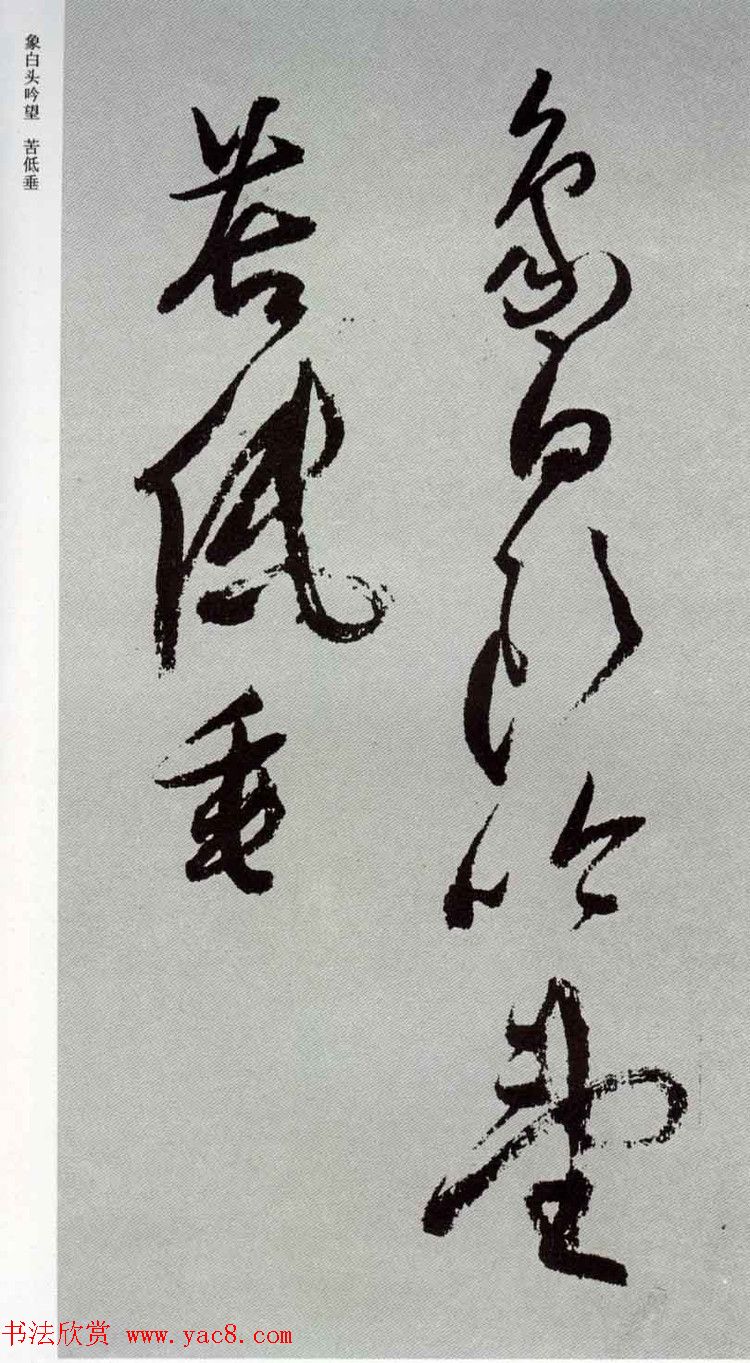 象白頭吟望
苦低垂
象白头吟望 苦低垂
书法欣赏 www.yac8.com